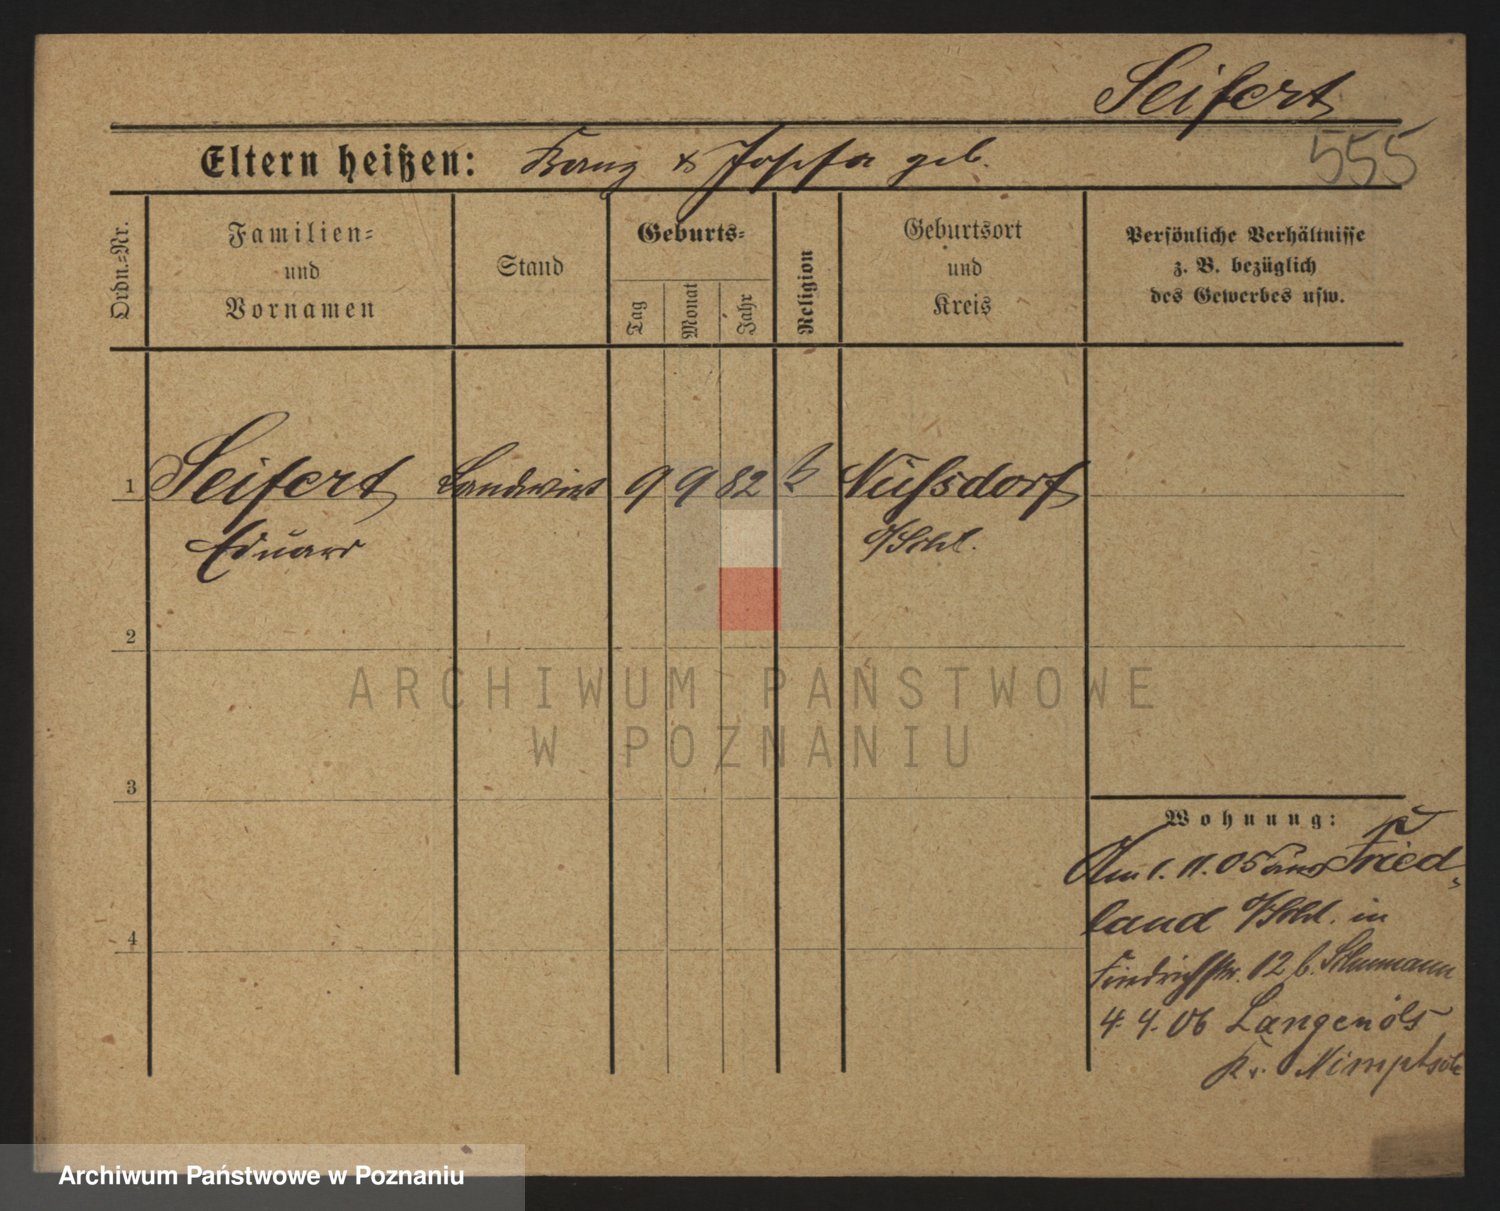 Seifert
555
Eltern heißen: Franz & Josefa geb.
Ordn.-Nr.
Familien-
und
Vornamen
Stand
Geburts-
Tag
Monat
Jahr
Religion
Geburtsort
und
Kreis
Persönliche Verhältnisse
z. B. bezüglich
des Gewerbes usw.
1 Seifert Landwirt 9 9 82 k Nußdorf
Eduard O/Schl.
2
3
4
ARCHIWUM PAŃSTWOWE
W POZNANIU
Wohnung:
Am 1. 11. 05 aus Fried-
land O/Schl. in
Friedrichstr. 12 b.
4. 4. 06 Langenöls
Kr. Nimptsch
Archiwum Państwowe w Poznaniu